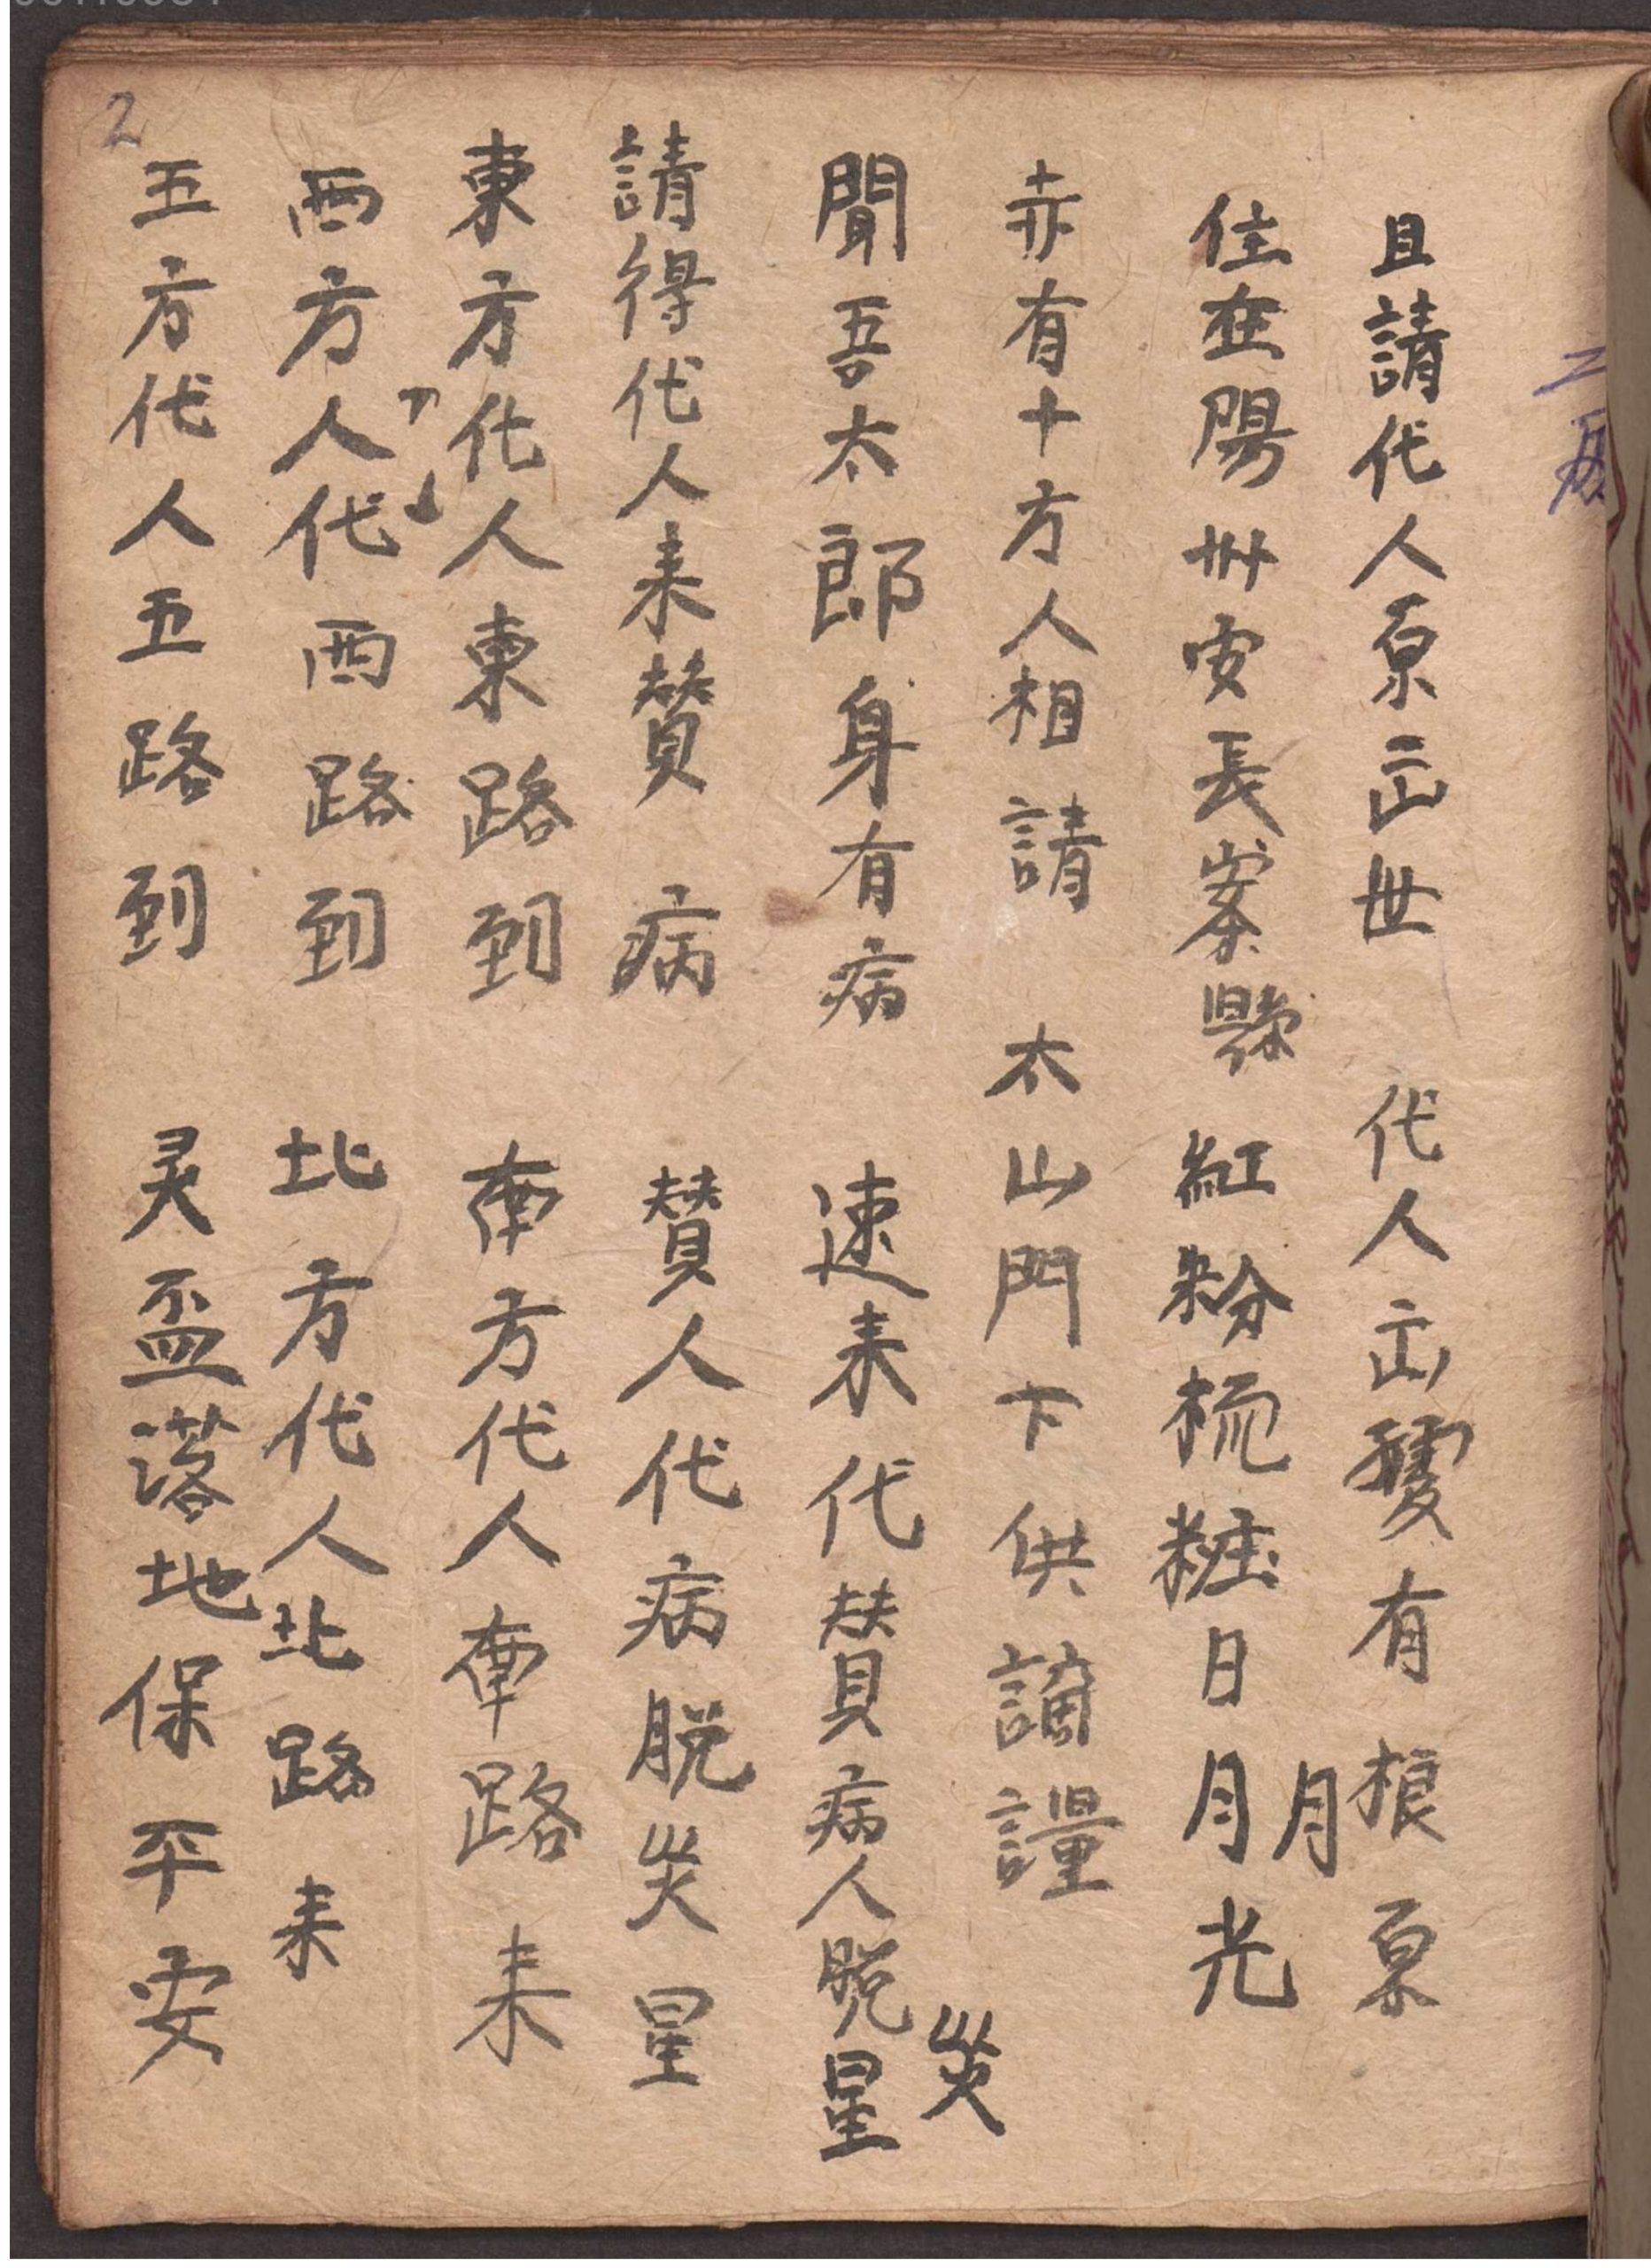 2
且請代人原出世 代人出䕶有根原
住在陽州安長寨縣 紅粉梳粧日月光
月
赤有十方人相請 太山門下供謪量
聞吾太郎身有病 速来代賛病人脱星
災
請得代人来賛病 賛人代病脱災星
東方代人東路到 南方代人南路来
西方人代西路到 北方代人北路来
五方代人五路到 灵盃落地保平安